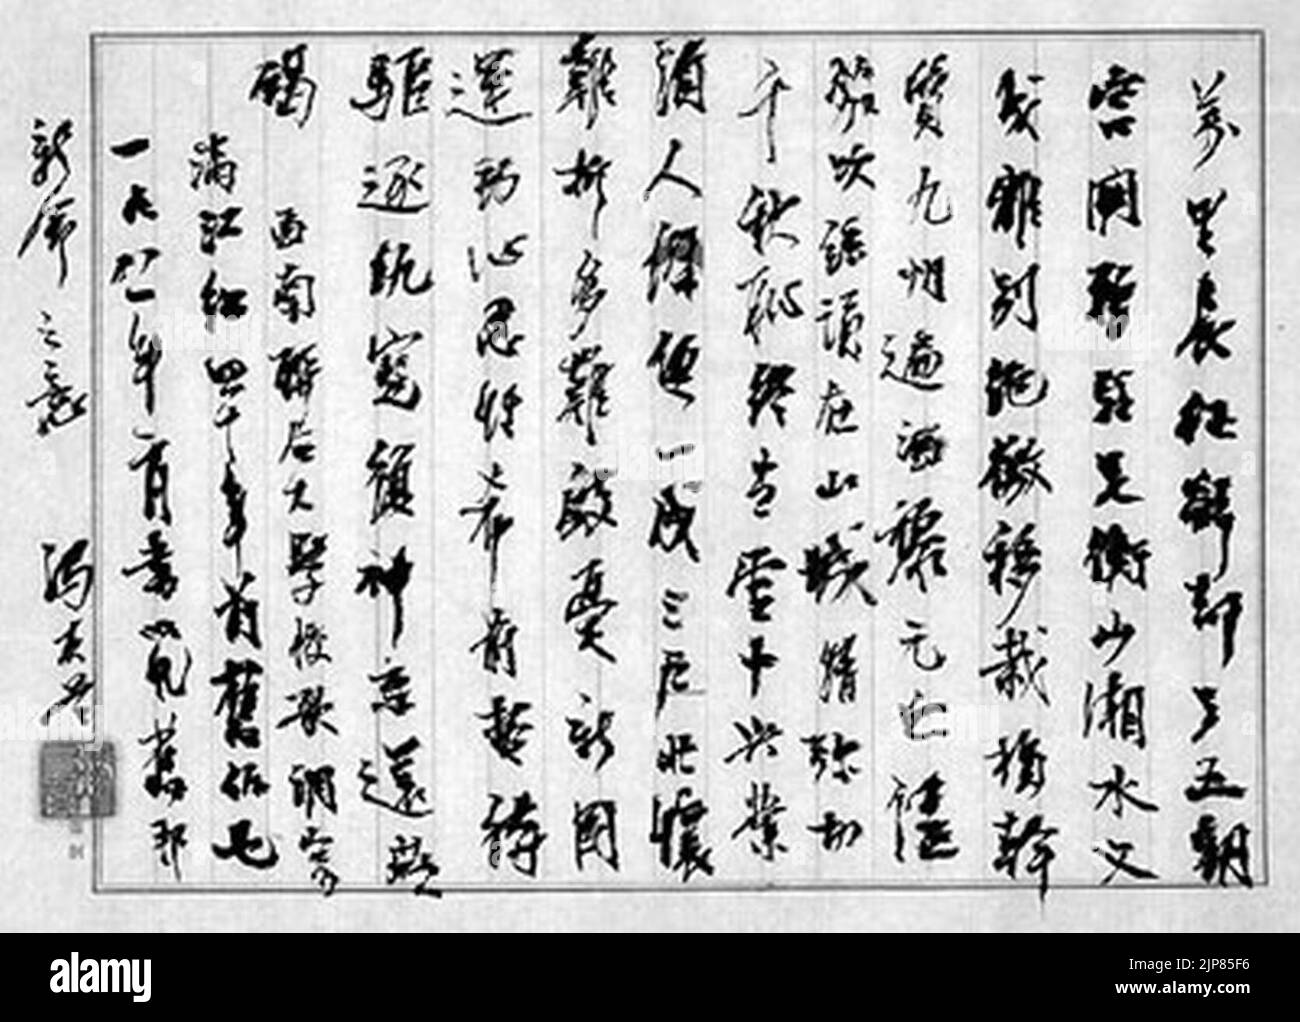 萬里長征辭却了五朝
宮闕暫駐足衡山湘水又
成離別絕徼移栽楨幹
質九州遍灑黎元血盡
笳吹絃誦在山城情彌切
千秋恥終當雪中興業
須人傑便一成三戶壯懷
難折多難殷憂新國
運動心忍性希前哲待
驅逐仇寇復神京還燕
碣 西南聯合大學校歌調寄
滿江紅四十年前舊作也
一九八一年一月書以見舊邦
新命之意 馮友蘭
alamy
Image ID: 2JP85F6
www.alamy.com